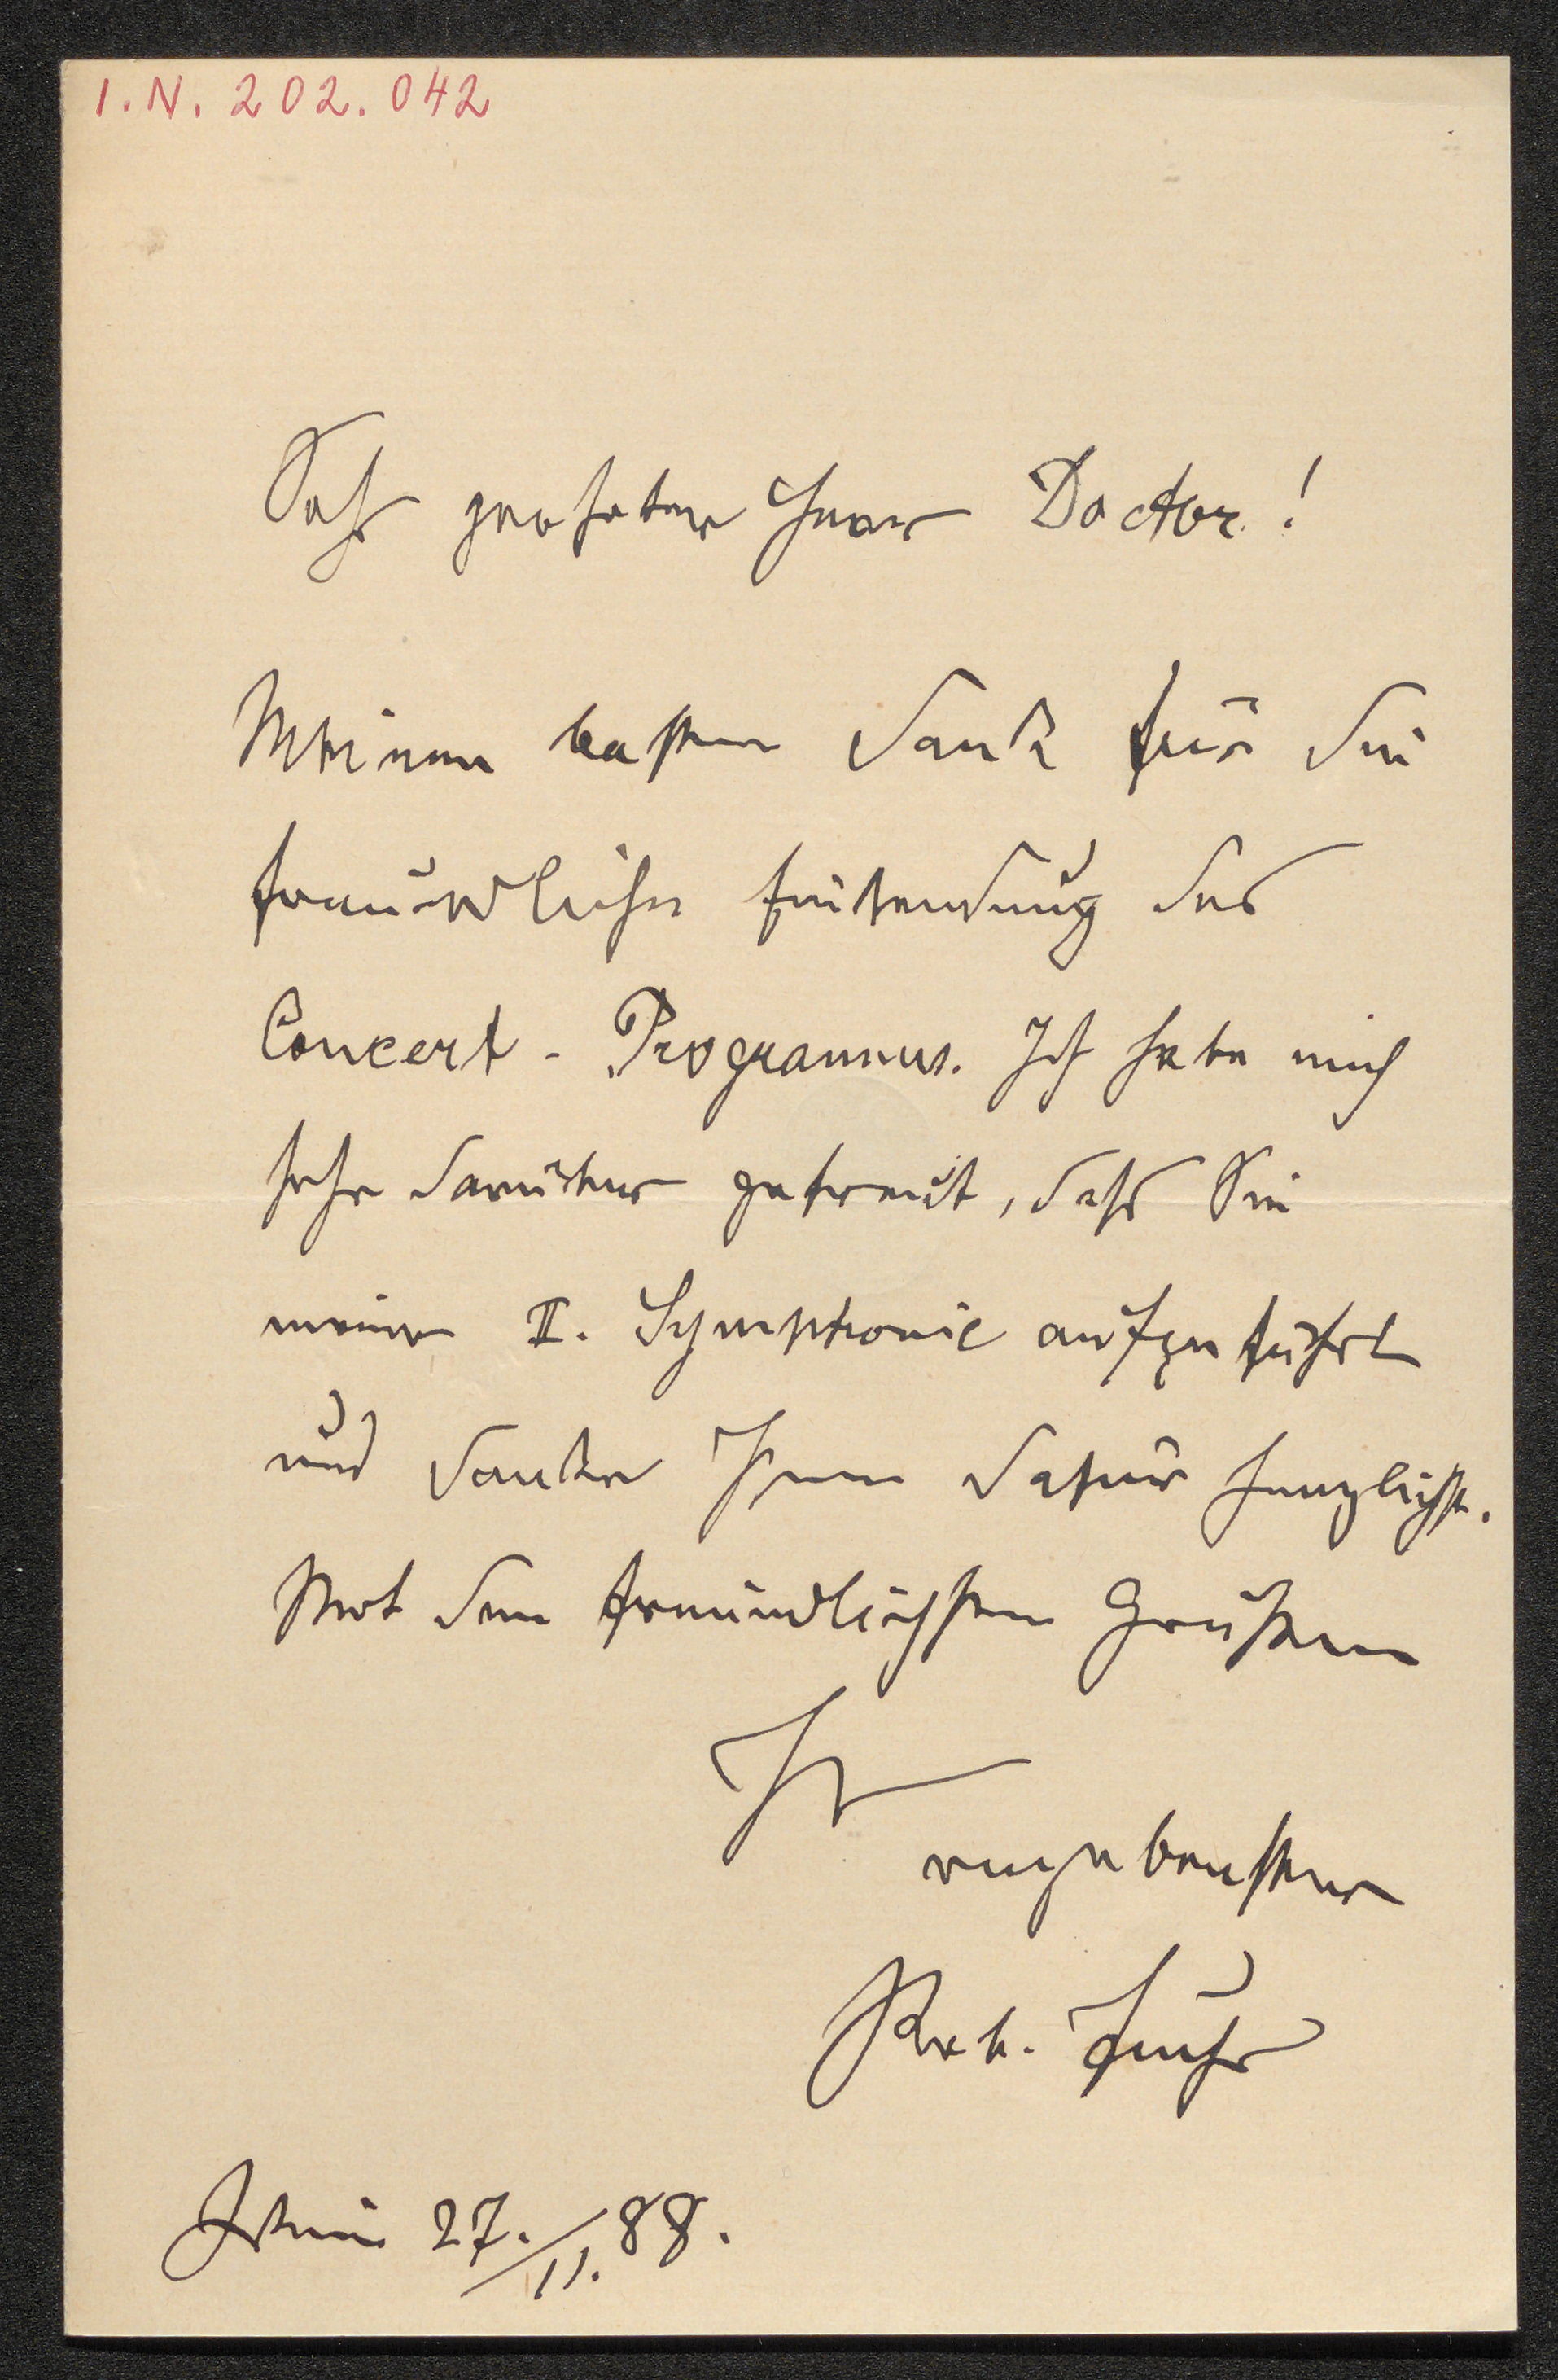 I.N. 202.042
Sehr geehrter Herr Doctor!
Meinen besten Dank für die
freundliche Einsendung des
Concert-Programms. Ich habe mich
sehr darüber gefreut, dass Sie
meine II. Symphonie aufgeführt
und danke Ihnen dafür herzlichst.
Mit den freundlichsten Grüßen
Ihr
ergebenster
Rob. Fuchs
Wien 27./11. 88.